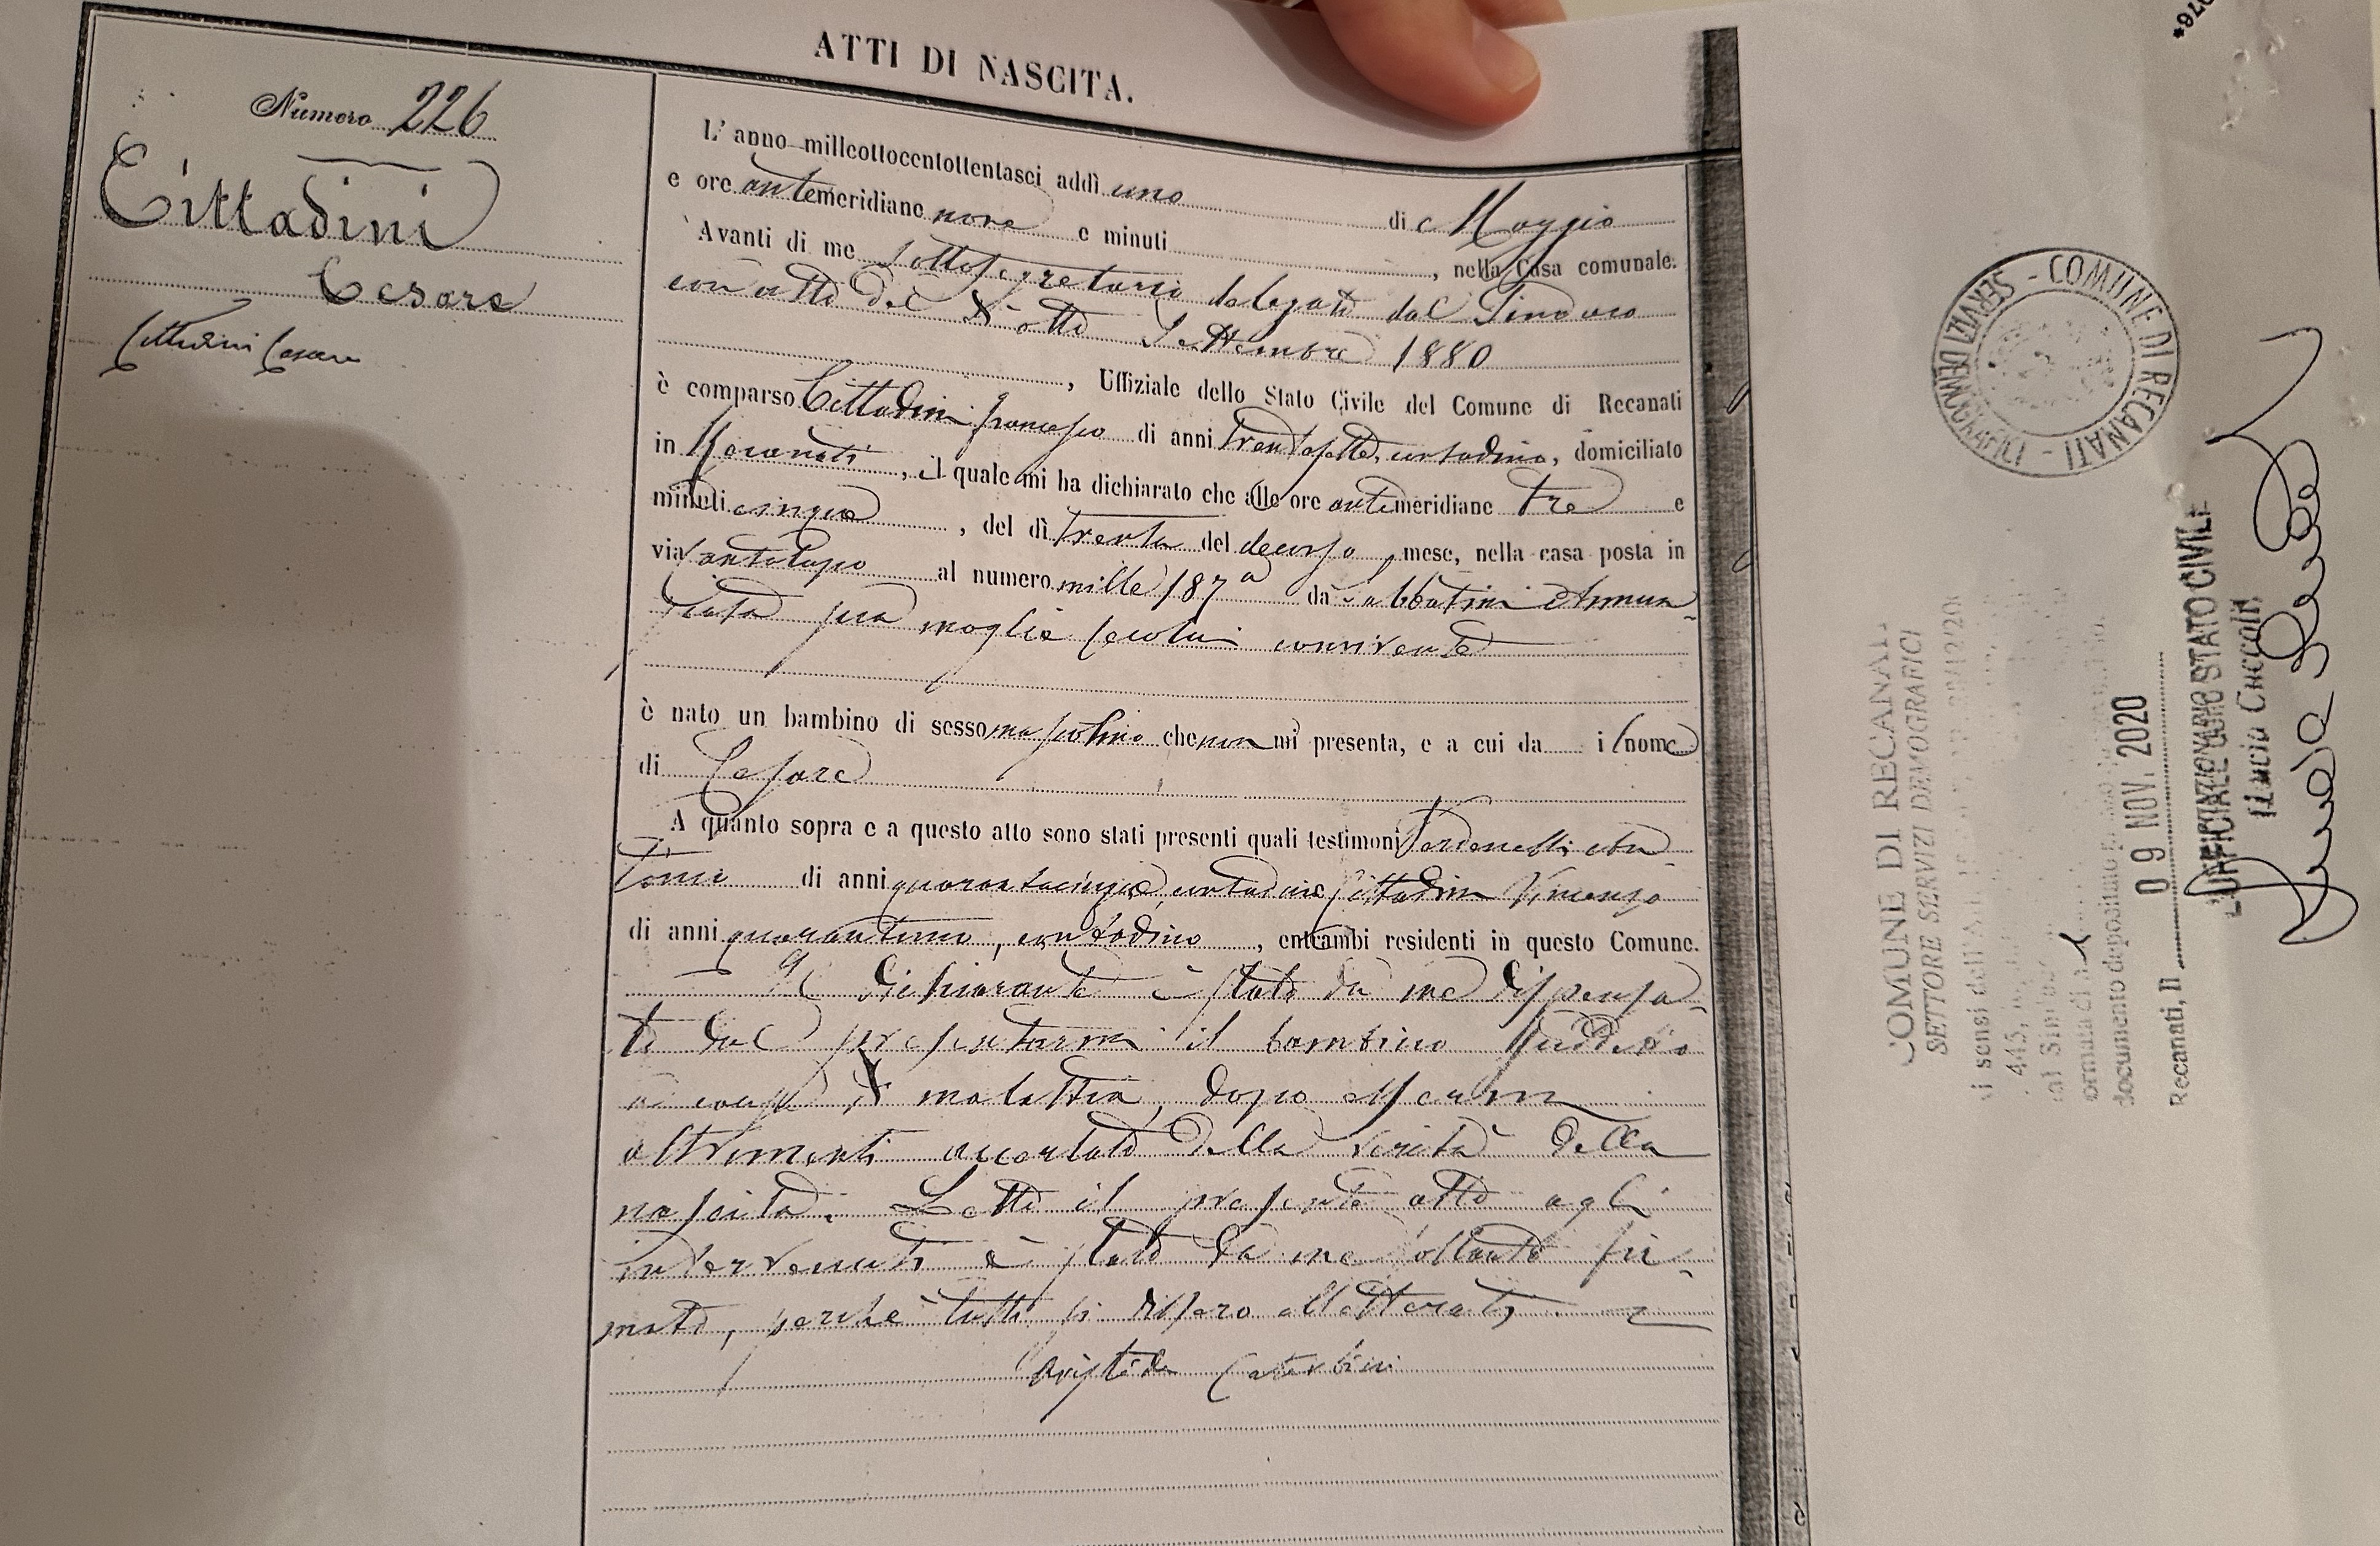 ATTI DI NASCITA.
Numero 226
Cittadini
Cesare
Cittadini Cesare
L'anno milleottocentottentasei addì uno di Maggio
e ore antemeridiane nove e minuti , nella Casa comunale.
Avanti di me Sottosegretario delegato dal Sindaco
con atto del dì otto Settembre 1880
, Uffiziale dello Stato Civile del Comune di Recanati
è comparso Cittadini Francesco di anni trentasette, contadino, domiciliato
in Recanati , il quale mi ha dichiarato che alle ore antemeridiane tre e
minuti cinque , del dì trenta del decorso mese, nella casa posta in
via Santolupo al numero mille 187 a da Sabbatini Annun
ziata sua moglie secolui convivente
è nato un bambino di sesso mascolino che non mi presenta, e a cui da il nome
di Cesare
A quanto sopra e a questo atto sono stati presenti quali testimoni An
tonio di anni quarantacinque, contadino, Cittadini Vincenzo
di anni quarantuno, contadino , entrambi residenti in questo Comune.
Il dichiarante è stato da me dispensa
to dal presentarmi il bambino suddetto
a causa di malattia, dopo essermi
altrimenti accertato della verità della
nascita. Letto il presente atto agli
intervenuti è stato da me soltanto fir
mato, perchè tutti si dissero illetterati.
Aristide
COMUNE DI RECANATI - SERVIZI DEMOGRAFICI -
COMUNE DI RECANATI
SETTORE SERVIZI DEMOGRAFICI
Ai sensi dell'
445,
al Sindaco
documento depositato
Recanati, lì 09 NOV. 2020
L'UFFICIALE STATO CIVILE
Lucia